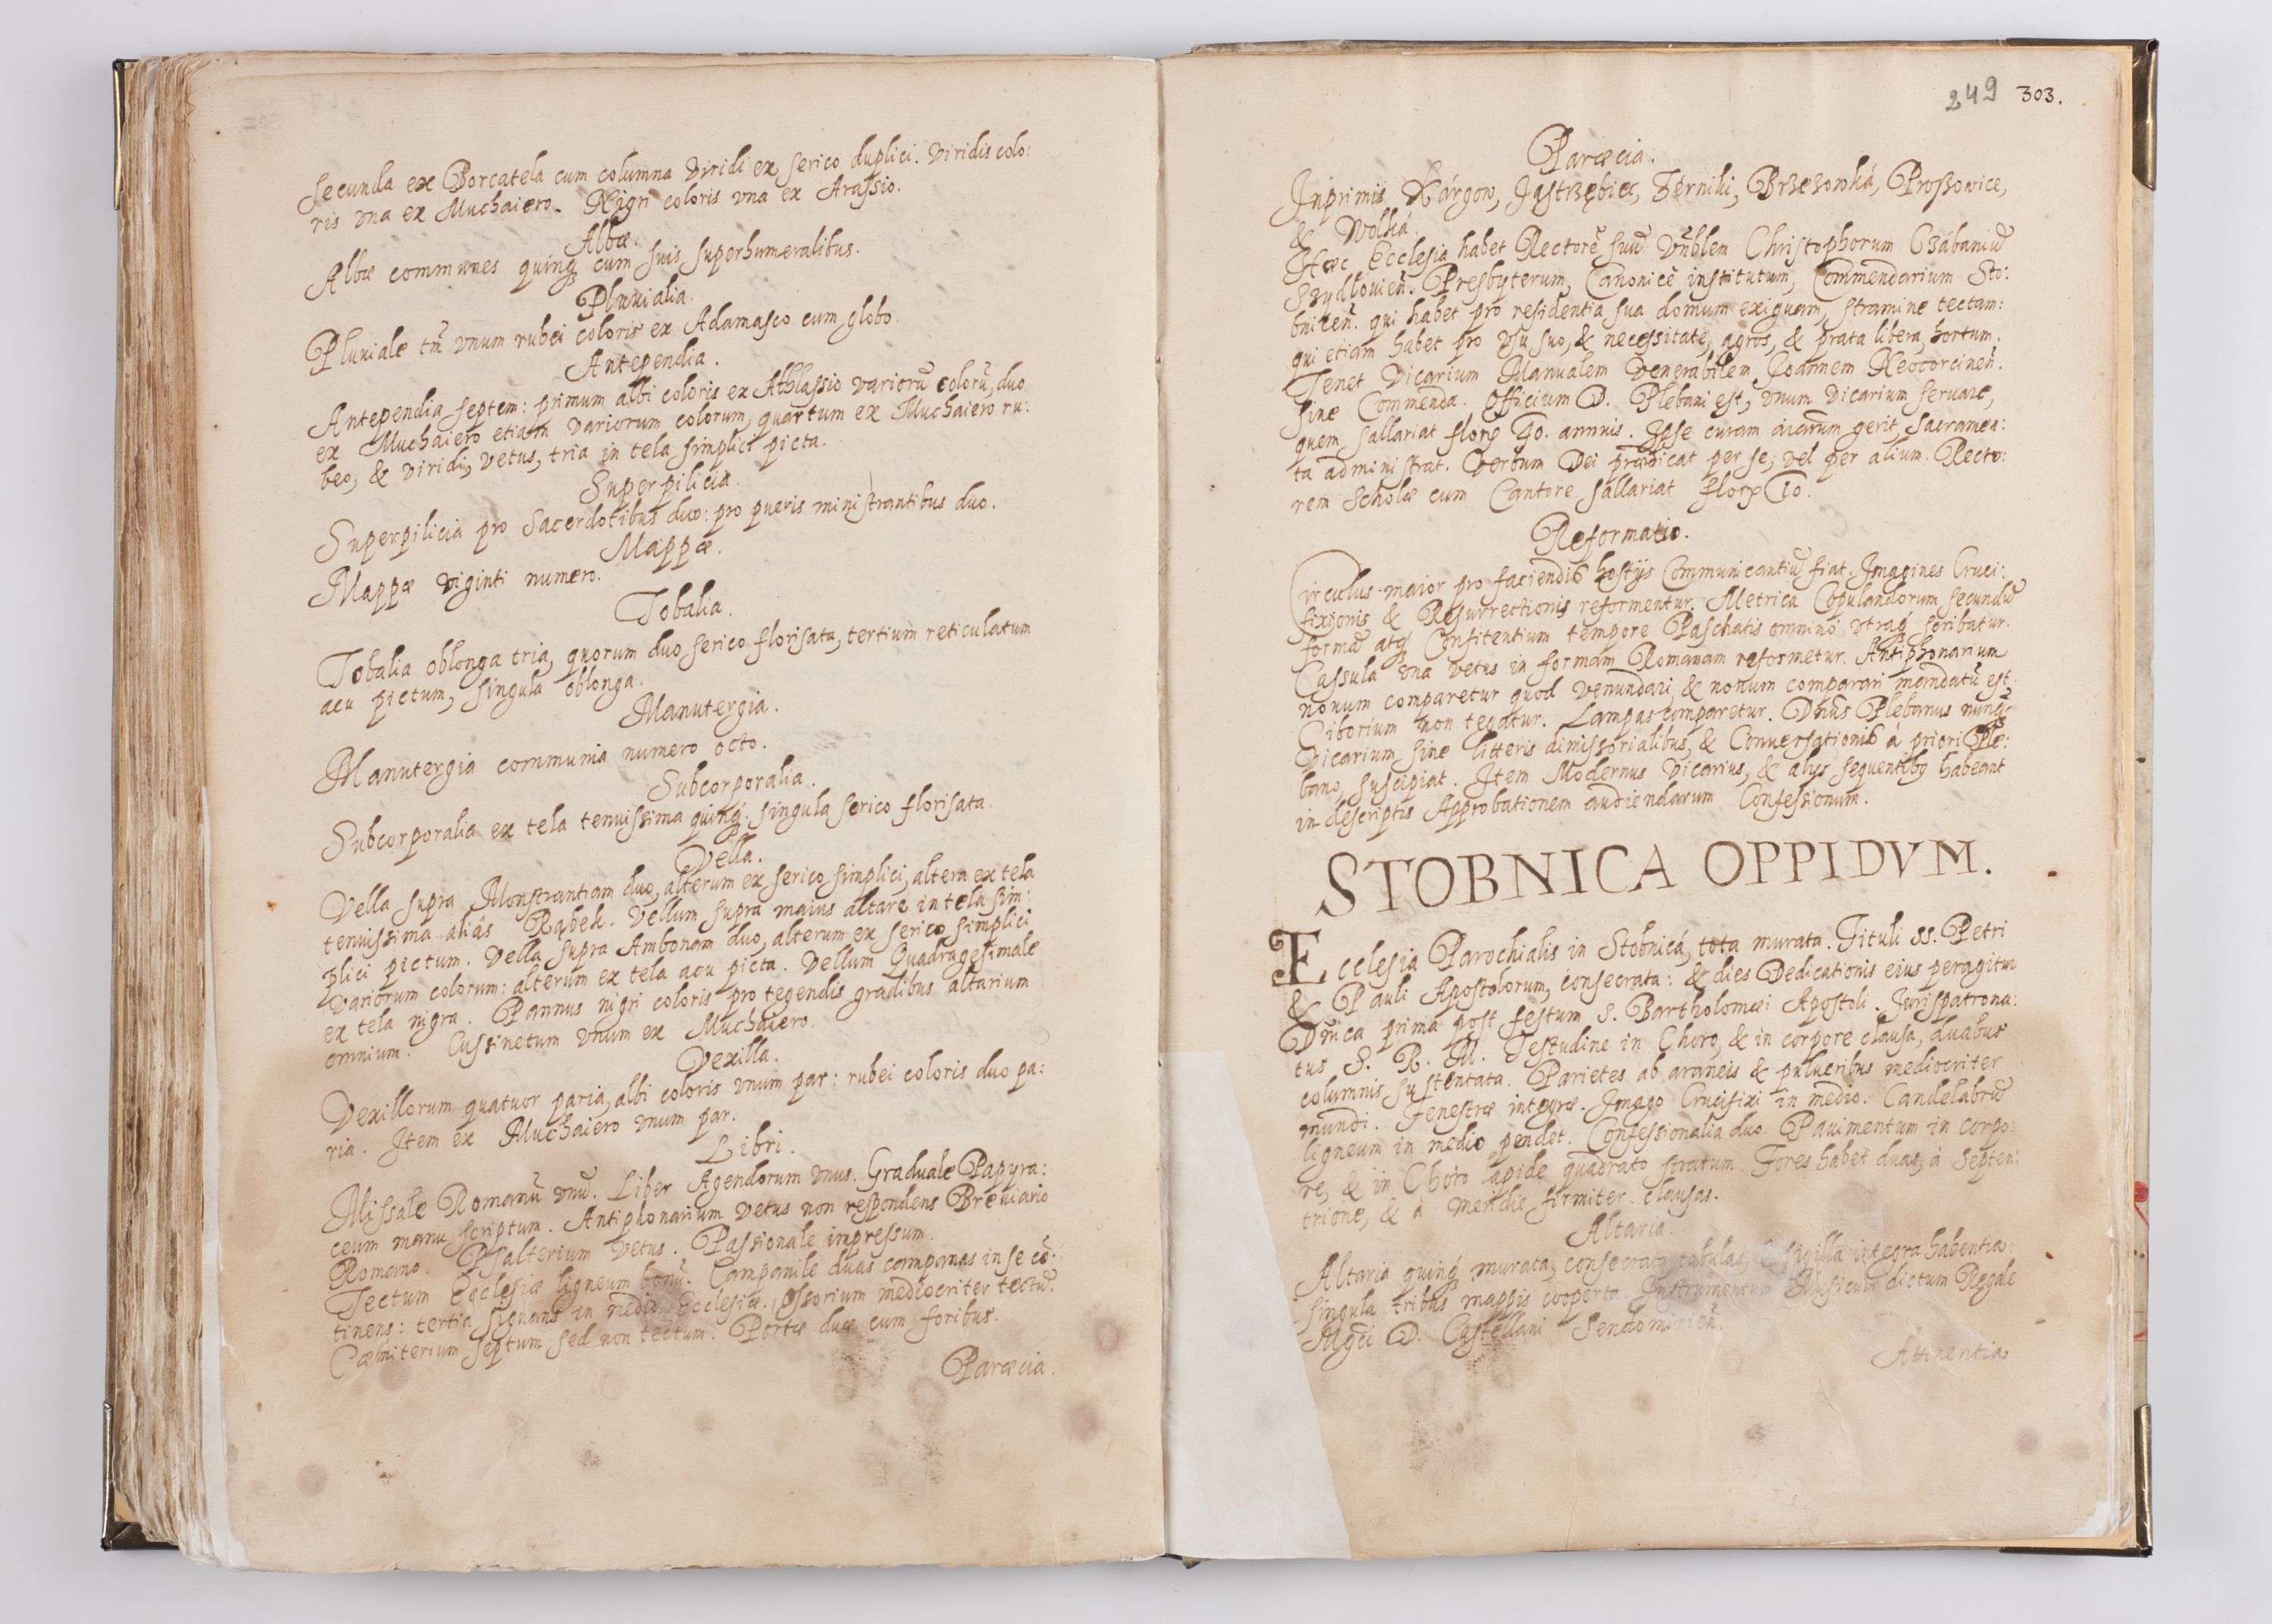 secunda ex Borcatela cum columna viridi ex serico duplici. Viridis colo:
ris vna ex Muchaiero. Nigri coloris vna ex Arassio.
Albæ.
Albæ communes quinq cum suis superhumeralibus.
Pluuialia.
Pluuiale tm̃ vnum rubei coloris ex Adamasco cum globo.
Antependia.
Antependia septem: primum albi coloris ex Athlassio variorũ colorũ, duo
ex Muchaiero etiam variorum colorum, quartum ex Muchaiero ru:
beo, & viridi, vetus, tria in tela simplici picta.
Superpilicia.
Superpilicia pro Sacerdotibus duo: pro pueris ministrantibus duo.
Mappæ.
Mappæ viginti numero.
Tobalia.
Tobalia oblonga tria, quorum duo serico florisata, tertium reticulatum
acu pictum, singula oblonga.
Manutergia.
Manutergia communia numero octo.
Subcorporalia.
Subcorporalia ex tela tenuissima quinq. singula serico florisata.
Vella.
Vella supra Monstrantiam duo, alterum ex serico simplici, altera ex tela
tenuissima aliâs Rąbek. Vellum supra maius altare in tela sim:
plici pictum. Vella supra Ambonam duo, alterum ex serico simplici
variorum colorum: alterum ex tela acu picta. Vellum Quadragesimale
ex tela nigra. Pannus nigri coloris pro tegendis gradibus altarium
omnium. Cussinetum vnum ex Muchaiero.
Vexilla.
Vexillorum quatuor paria, albi coloris vnum par: rubei coloris duo pa:
ria. Item ex Muchaiero vnum par.
Libri.
Missale Romanũ vnũ. Liber Agendorum vnus. Graduale Papyra:
ceum manu scriptum. Antiphonarium vetus non respondens Breuiario
Romano. Psalterium vetus. Passionale impressum.
Tectum Ecclesiæ ligneum bonũ. Campanile duas campanas in se cõ:
tinens: tertia signans in medio Ecclesiæ. Ossorium mediocriter tectũ.
Cœmiterium septum sed non tectum. Portæ duæ cum foribus.
Parœcia.
249 303.
Parœcia.
Inprimis Kárgow, Jastrzębiec, Zérniki, Brzezowká, Proßowice,
& Wolká.
Hæc Ecclesia habet Rectorẽ suũ Vñblem Christophorum Czábaniũ
Szydlouieñ. Presbyterum, Canonicè institutum, Commendarium Sto:
bniceñ. qui habet pro residentia sua domum exiguam, stramine tectam:
qui etiam habet pro vsu suo, & necessitate, agros, & prata libera, hortum.
Tenet Vicarium Manualem Venerabilem Joannem Neocorcineñ.
sine Commenda. Officium D. Plebani est, vnum vicarium seruare,
quem sallariat flor. 40. annuis. Ipse curam aĩarum gerit, Sacramen:
ta administrat. Verbum Dei prædicat per se, vel per alium. Recto:
rem Scholæ cum Cantore sallariat flor. 10.
Reformatio.
Circulus maior pro faciendis hostijs Communicantiũ fiat. Imagines Cruci:
fixionis & Resurrectionis reformentur. Metrica Copulandorum secundũ
formã atq Confitentium tempore Paschatis omnino vtraq scribatur.
Cassula vna vetus in formam Romanam reformetur. Antiphonarium
nouum comparetur quod venundari, & nouum comparari mandatũ est.
Ciborium non tegatur. Lampas comparetur. Dñus Plebanus nunq
Vicarium sine litteris dimissorialibus, & Conuersationis à priori Ple:
bano, suscipiat. Item Modernus Vicarius, & alys sequentibus habeant
in descriptis Approbationem audiendarum Confessionum.
STOBNICA OPPIDVM.
Ecclesia Parochialis in Stobnicá, tota murata. Tituli SS. Petri
& Pauli Apostolorum, consecrata: & dies Dedicationis eius peragitur
Dñica prima post festum S. Bartholomæi Apostoli. Jurispatrona:
tus S. R. M. Testudine in Choro, & in corpore clausa, duabus
columnis sustentata. Parietes ab araneis & pulueribus mediocriter
mundi. Fenestræ integræ. Imago Crucifixi in medio. Candelabrũ
ligneum in medio pendet. Confessionalia duo. Pauimentum in corpo:
re, & in Choro lapide quadrato stratum. Fores habet duas, à Septen:
trione, & à meridie firmiter clausas.
Altaria.
Altaria quinq murata, consecrata tabulas & sigilla integra habentia:
singula tribus mappis cooperta. Instrumentum Musicum dictum Regale
Mgci D. Castellani Sendomirieñ.
Attinentia